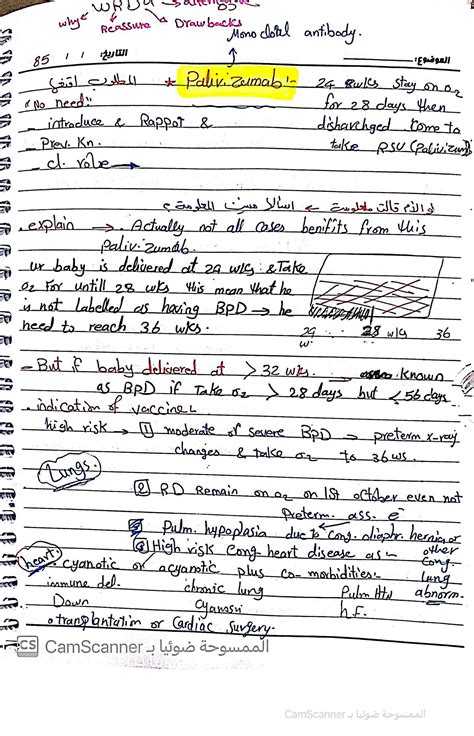 why Reassure Drawbacks
Mono clotel antibody.
85 / / التاريخ: الموضوع:
* Palivizumab:- 24 8wks stay on o2
"No need" for 28 days then
- introduce & Rappot & dishavchged come to
- Prev. Kn. take RSU (Palivizum)
- cl. role →
. explain → . Actually not all cases benifits from this
Palivizumab.
ur baby is delivered at 29 wks & Take
o2 for untill 28 wks this mean that he
is not labelled as having BPD → he
need to reach 36 wks. 29 28 wlg 36
w.
- But if baby delivered at > 32 wks. known
as BPD if Take o2 > 28 days but < 56 days
. indication of vaccine
high risk → 1 moderate of severe BPD → preterm x-ray
changes & take o2 to 36 ws.
Lungs.
2 RD Remain on o2 on 1st october even not
Preterm. ass. e
3 Pulm. hypoplasia due to cong. diaphr. hernia or
4 High risk Cong heart disease as:- other
heart. cyanotic or acyanotic plus co-morbidities:- cong.
immune del. chronic lung Pulm Htn lung
Down cyanosis h.f. abnorm.
o transplantation or Cardiac surgery.
CS CamScanner الممسوحة ضوئيا بـ
CamScanner الممسوحة ضوئيا بـ